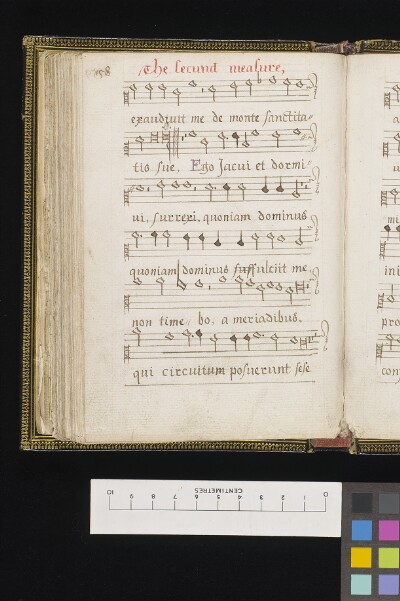 58
The second measure,
exaudiuit me de monte sanctita=
tio sue, Ego Jacui et dormi=
ui, surrexi, quoniam dominus
quoniam dominus suffulciit me,
non time= bo, a meriadibus.
qui circuitum posuerunt sese
CENTIMETRES
10 9 8 7 6 5 4 3 2 1 0